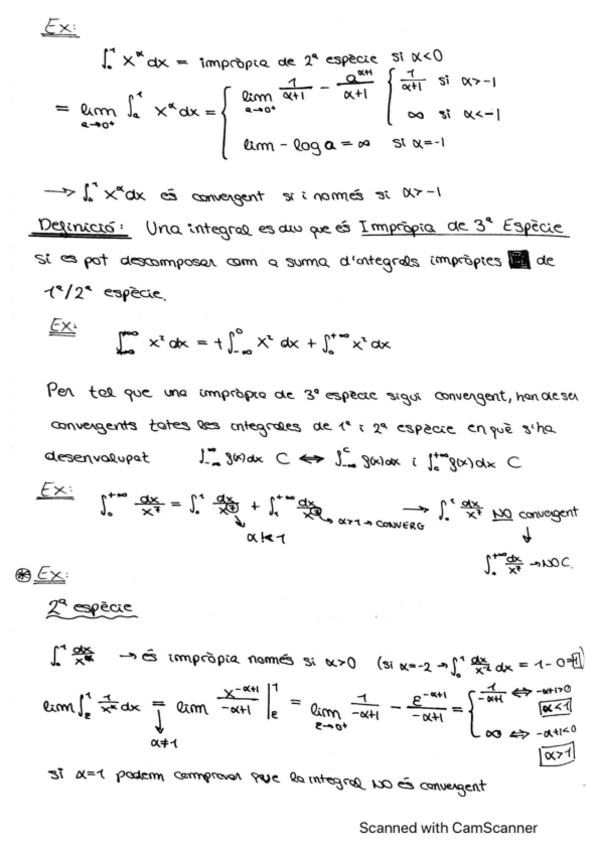 Ex:
∫₀¹ x^α dx = impròpia de 2ª espècie si α<0
= lim_{a→0⁺} ∫ₐ¹ x^α dx = { lim_{a→0⁺} 1/(α+1) − a^{α+1}/(α+1) { 1/(α+1) si α>-1
∞ si α<-1
lim − log a = ∞ si α=-1
→ ∫₀¹ x^α dx és convergent si i només si α>-1
Definició: Una integral es diu que és Impròpia de 3ª Espècie
si es pot descomposar com a suma d'integrals impròpies de
1ª/2ª espècie.
Ex:
∫_{-∞}^{+∞} x² dx = +∫_{-∞}^0 x² dx + ∫₀^{+∞} x² dx
Per tal que una impròpia de 3ª espècie sigui convergent, han de ser
convergents totes les integrales de 1ª i 2ª espècie en què s'ha
desenvalupat ∫_{-∞}^{∞} f(x)dx C ⟺ ∫_{-∞}^c f(x)dx i ∫_c^{+∞} f(x)dx C
Ex: ∫₀^{+∞} dx/x⁷ = ∫₀¹ dx/x⁷ + ∫₁^{+∞} dx/x⁷ → α>1 → CONVERG → ∫₀¹ dx/x⁷ NO convergent
α<1
∫₀^{+∞} dx/x⁷ → NO C.
⊛ Ex:
2ª espècie
∫₀¹ dx/x^α → és impròpia només si α>0 (si α=-2 → ∫₀¹ dx/x^{-2} dx = 1-0=1)
lim ∫_ε¹ 1/x^α dx = lim x^{-α+1}/(-α+1) |_ε^1 = lim_{ε→0⁺} 1/(-α+1) − ε^{-α+1}/(-α+1) = { 1/(-α+1) ⟺ -α+1>0
α<1
∞ ⟺ -α+1<0
α>1
α≠1
si α=1 podem comprovar que la integral NO és convergent
Scanned with CamScanner